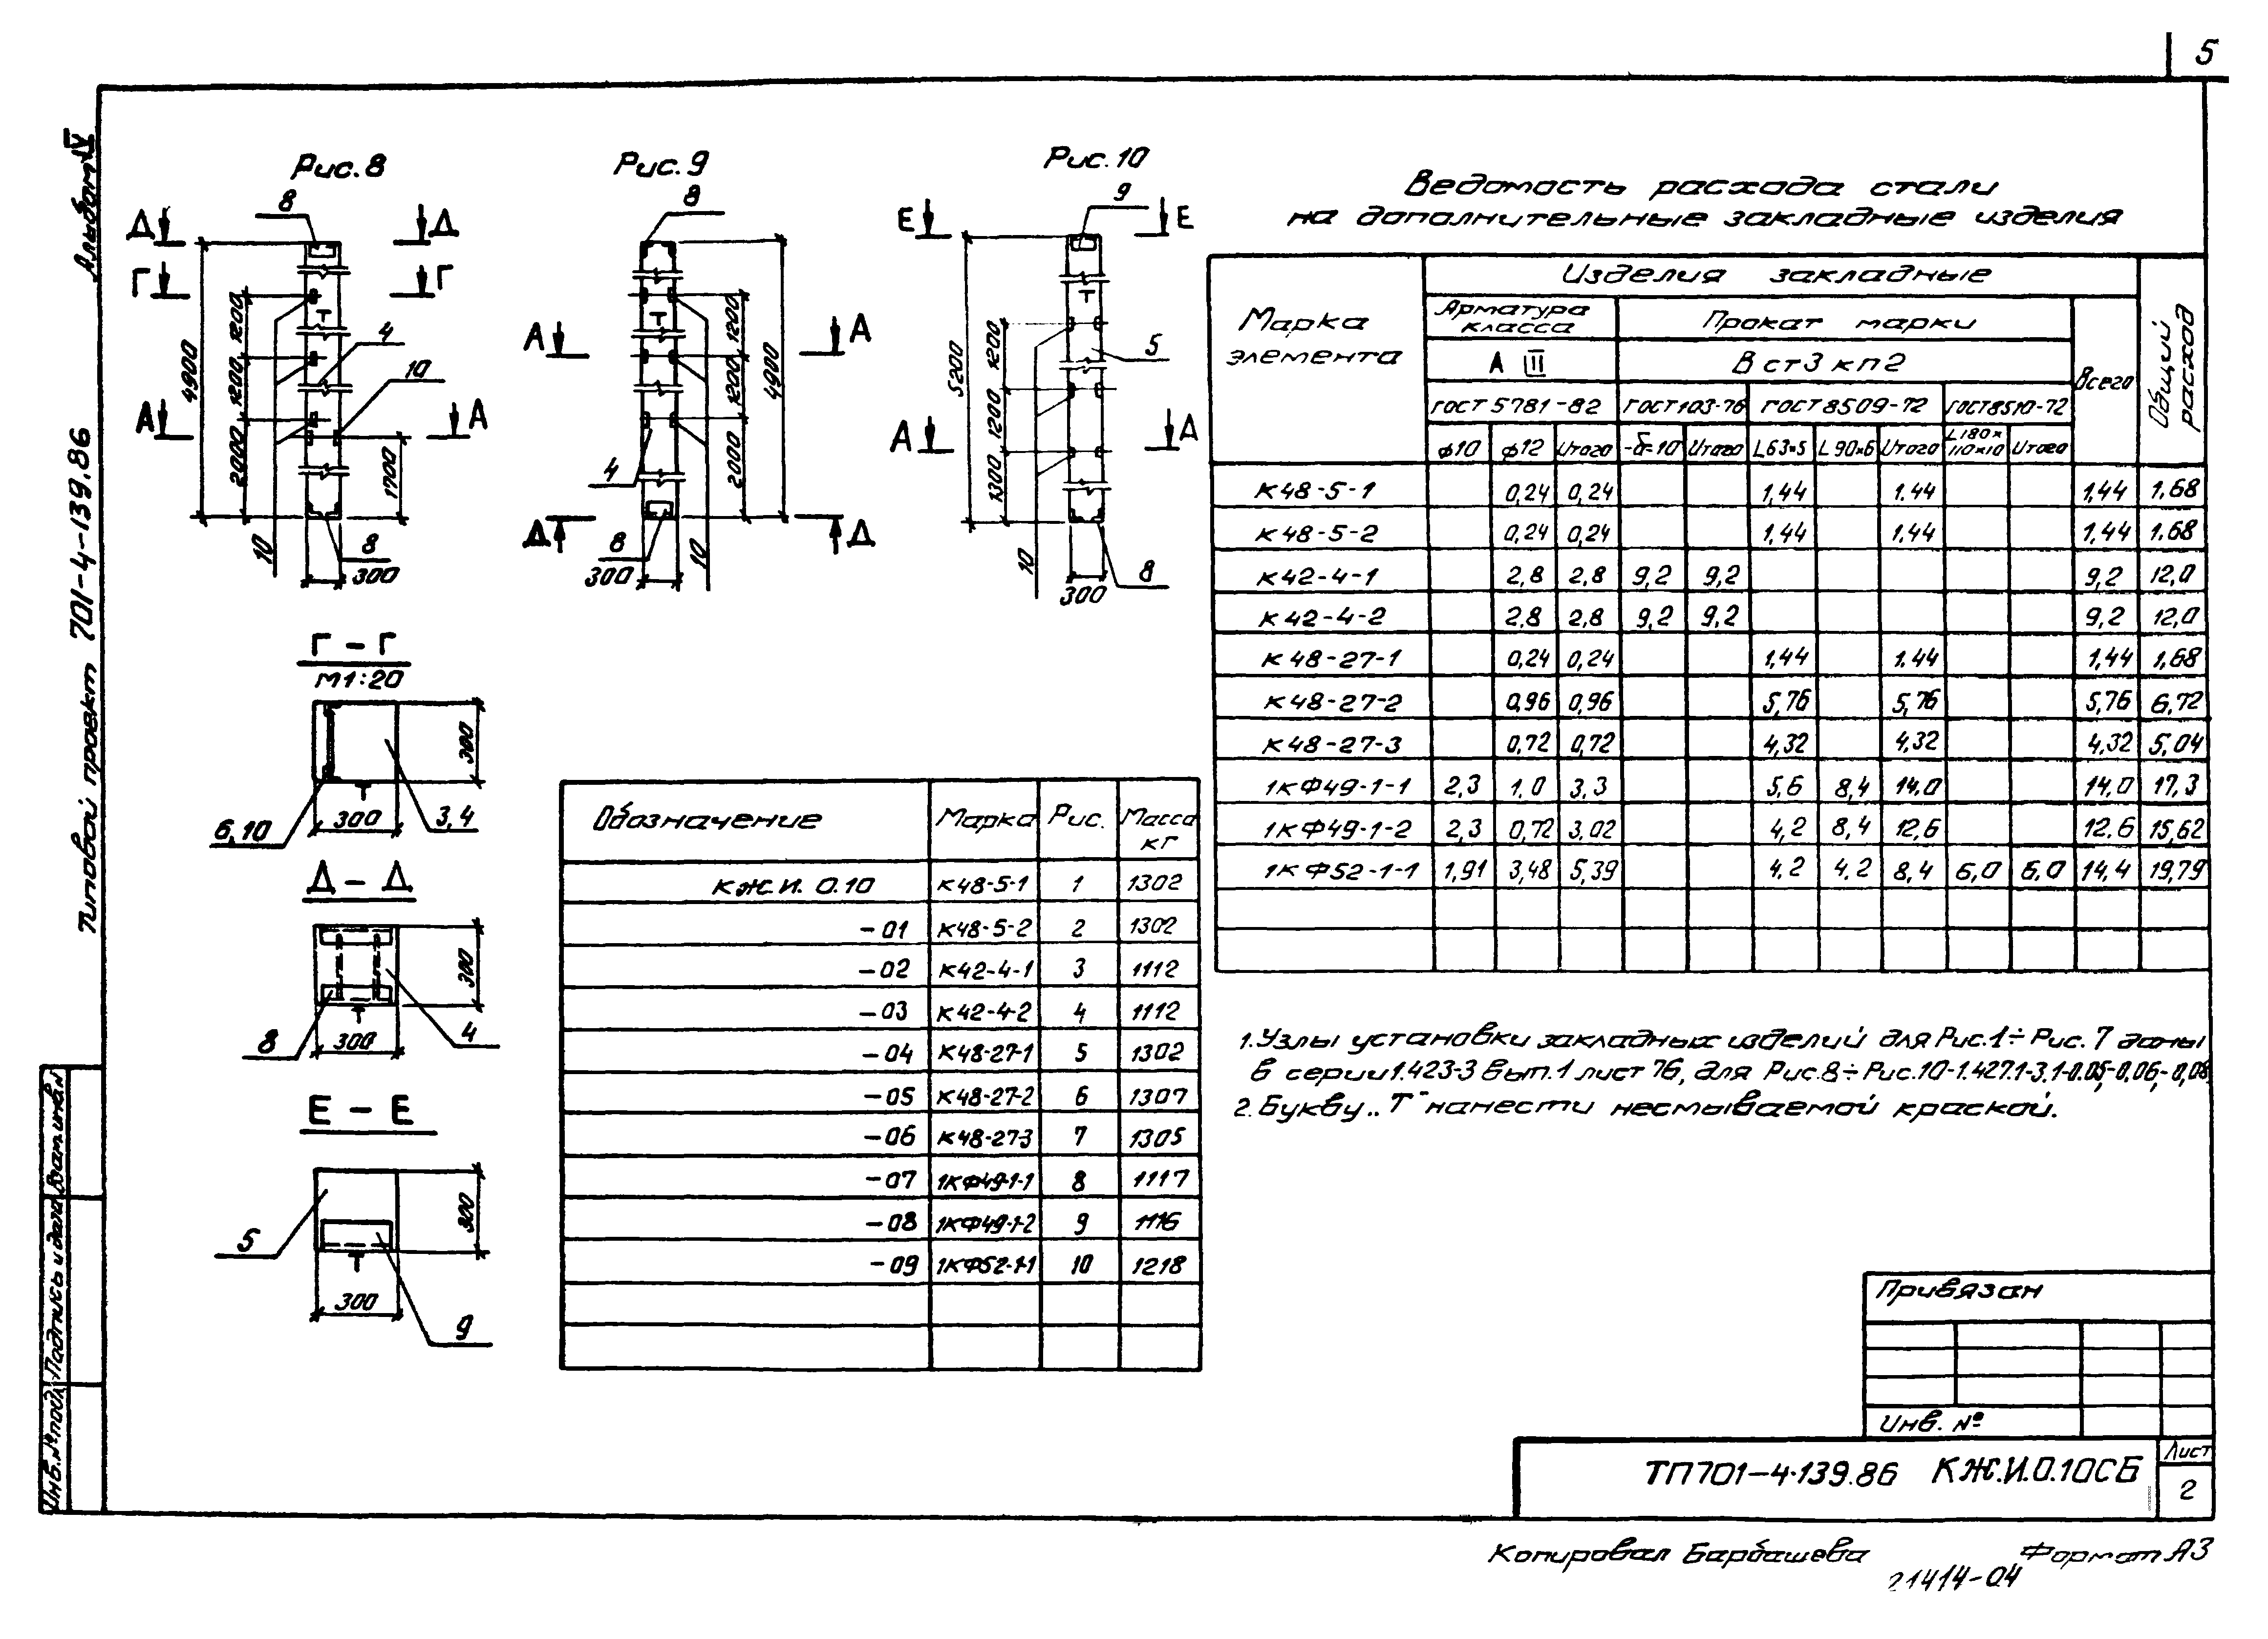 5
Альбом IV
Типовой проект 701-4-139.86
Рис. 8
8
Д Д
Г Г
А А
4900
1200
1200
2000
1700
4
10
10
8
300
Рис. 9
8
А А
Д Д
1200
1200
2000
4900
4
8
10
300
Рис. 10
9
Е Е
А А
5200
1200
1200
1300
5
10
8
300
Г - Г
М1:20
300
300
6,10
3,4
Д - Д
300
300
8
4
Е - Е
300
300
5
9
Обозначение Марка Рис. Масса кг
КЖ.И. 0.10 К48-5-1 1 1302
-01 К48-5-2 2 1302
-02 К42-4-1 3 1112
-03 К42-4-2 4 1112
-04 К48-27-1 5 1302
-05 К48-27-2 6 1307
-06 К48-27-3 7 1305
-07 1КФ49-1-1 8 1117
-08 1КФ49-1-2 9 1116
-09 1КФ52-1-1 10 1218
Ведомость расхода стали
на дополнительные закладные изделия
Марка элемента
Изделия закладные
Общий расход
Арматура класса
Прокат марки
Всего
А III
В ст3 кп2
ГОСТ 5781-82 ГОСТ 103-76 ГОСТ 8509-72 ГОСТ 8510-72
ф10 ф12 Итого -δ=10 Итого L63×5 L90×6 Итого L180×110×10 Итого
К48-5-1 0,24 0,24 1,44 1.44 1,44 1,68
К48-5-2 0,24 0,24 1,44 1.44 1,44 1.68
К42-4-1 2,8 2,8 9,2 9,2 9,2 12,0
К42-4-2 2,8 2,8 9,2 9,2 9,2 12,0
К48-27-1 0,24 0,24 1,44 1.44 1,44 1,68
К48-27-2 0,96 0,96 5,76 5,76 5,76 6,72
К48-27-3 0,72 0,72 4,32 4,32 4,32 5,04
1КФ49-1-1 2,3 1,0 3,3 5,6 8,4 14,0 14,0 17,3
1КФ49-1-2 2,3 0,72 3,02 4,2 8,4 12,6 12,6 15,62
1КФ52-1-1 1,91 3,48 5,39 4,2 4,2 8,4 6,0 6,0 14,4 19,79
1. Узлы установки закладных изделий для Рис.1÷Рис. 7 даны
в серии 1.423-3 вып.1 лист 76, для Рис.8÷Рис.10-1.427.1-3.1-0.05,-0,06,-0,08
2. Букву „Т" нанести несмываемой краской.
Привязан
Инв. №
ТП701-4-139.86 КЖ.И.0.10СБ
Лист
2
Взам.инв.№
Подпись и дата
Инв.№подл.
Копировал Барбашева Формат А3
21414-04